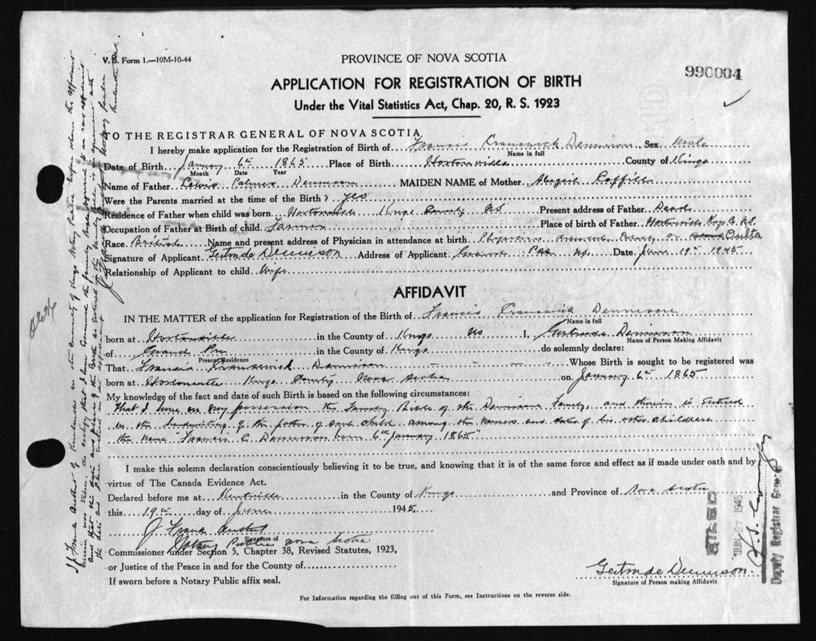 V. S. Form 1.—10M-10-44
PROVINCE OF NOVA SCOTIA
990004
APPLICATION FOR REGISTRATION OF BIRTH
Under the Vital Statistics Act, Chap. 20, R. S. 1923
TO THE REGISTRAR GENERAL OF NOVA SCOTIA
I hereby make application for the Registration of Birth of Francis Cranswick Dennison Sex Male
Name in full
Date of Birth January 6th 1865 Place of Birth Hortonville County of Kings
Month Date Year
Name of Father Lewis Palmer Dennison MAIDEN NAME of Mother Abigail Coffill
Were the Parents married at the time of the Birth? yes
Residence of Father when child was born Hortonville Kings County NS Present address of Father Dead
Occupation of Father at Birth of child Farmer Place of birth of Father Hortonville Kings Co. NS.
Race British Name and present address of Physician in attendance at birth Physician deceased
Signature of Applicant Gertrude Dennison Address of Applicant Grand Pre NS Date June 19th 1945
Relationship of Applicant to child Wife
AFFIDAVIT
IN THE MATTER of the application for Registration of the Birth of Francis Cranswick Dennison
Name in full
born at Hortonville in the County of Kings NS I, Gertrude Dennison
Name of Person Making Affidavit
of Grand Pre in the County of Kings do solemnly declare:
Present Residence
That Francis Cranswick Dennison Whose Birth is sought to be registered was
born at Hortonville Kings County Nova Scotia on January 6th 1865
My knowledge of the fact and date of such Birth is based on the following circumstances:
That I have in my possession the Family Bible of the Dennison Family, and therein is entered
in the handwriting of the father of said child among the names and dates of his other children
the name "Francis C. Dennison born 6th January 1865"
I make this solemn declaration conscientiously believing it to be true, and knowing that it is of the same force and effect as if made under oath and by
virtue of The Canada Evidence Act.
Declared before me at Kentville in the County of Kings and Province of Nova Scotia
this 19th day of June 1945
J Frank
Signature of
Notary Public Nova Scotia
Commissioner under Section 5, Chapter 38, Revised Statutes, 1923,
or Justice of the Peace in and for the County of
If sworn before a Notary Public affix seal.
Gertrude Dennison
Signature of Person making Affidavit
For Information regarding the filling out of this Form, see Instructions on the reverse side.
JUN 27 1945
Deputy Registrar General